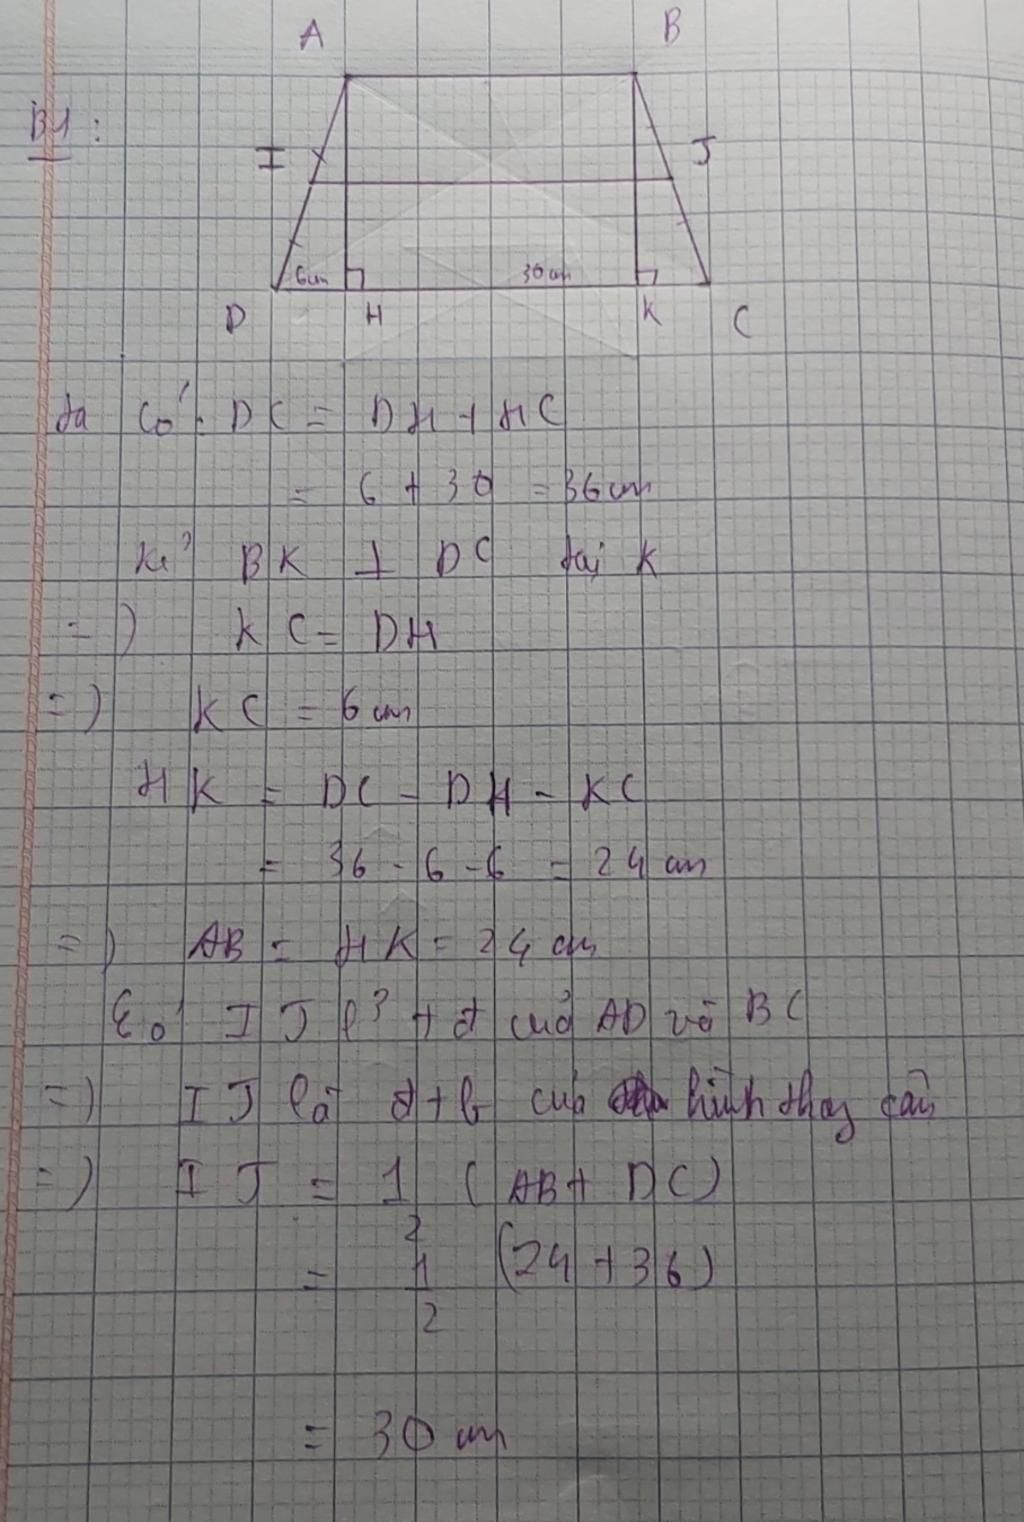 A B
B1 :
I J
6cm 30cm
D H K C
ta có : DC = DH + HC
= 6 + 30 = 36cm
Kẻ BK ⊥ DC tại K
=) KC = DH
=) KC = 6cm
HK = DC - DH - KC
= 36 - 6 - 6 = 24 cm
=) AB = HK = 24 cm
Có I J là t đ của AD và BC
=) IJ là đtb của hình thang cân
=) IJ = 1/2 (AB + DC)
= 1/2 (24 + 36)
= 30 cm